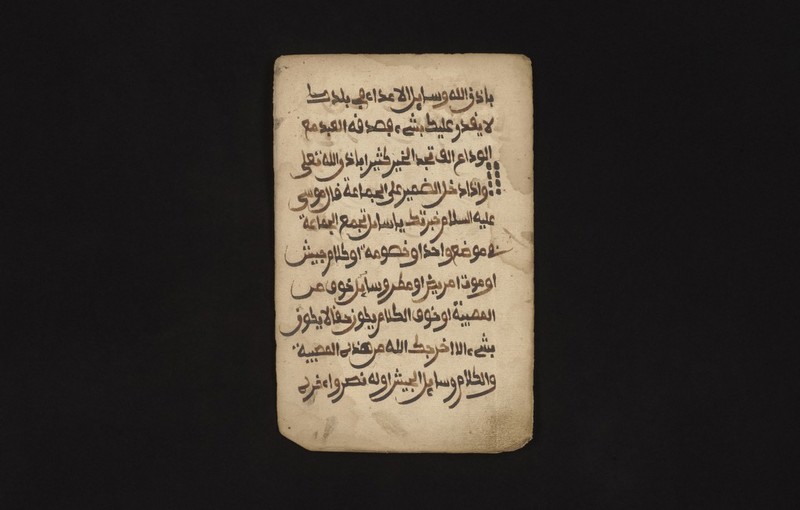 باذن الله وسايل الاعداء في بلدك
لا يقدر عليك بشيء فصدفه العبد مع
الوداع الف تجد الخير كثيرا باذن الله تعلى
واذا دخل الضمير على الجماعة فال موسى
عليه السلام خبرتك يا سايل تجمع الجماعة
في موضع واحد او خصومة او كلام جيش
او موت امريض او مطر وسايل خوف من
المصيبة او خوف الكلام يكون حفا لا يكون
بشيء الا اخرجك الله من هذه المصيبة
والكلام وسايل الجيش اوله نصر واخره